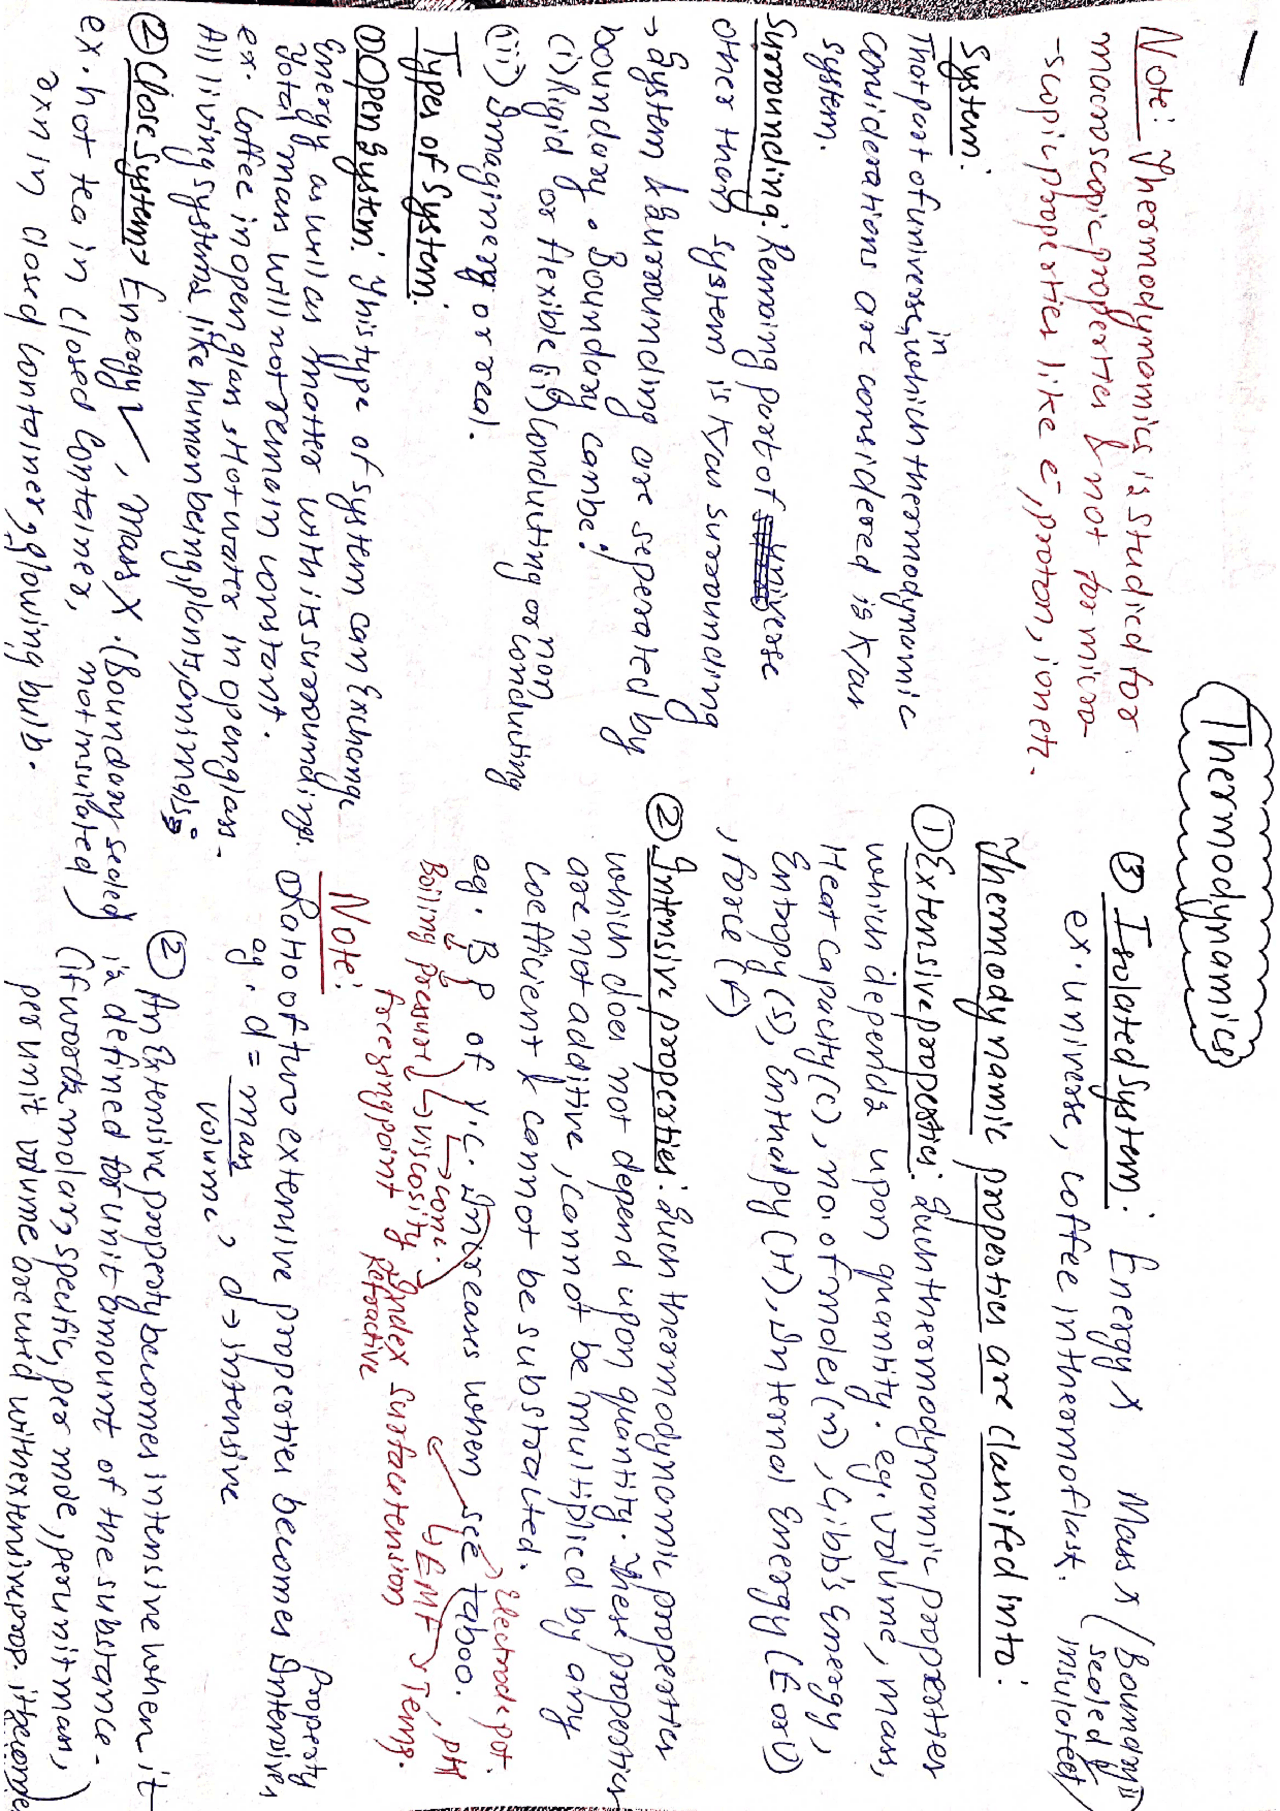 Thermodynamics
Note: Thermodynamics is studied for
macroscopic properties & not for micro
-scopic properties like e⁻, proton, ion etc.
System:
That part of universe, in which thermodynamic
considerations are considered is k/as
system.
Surrounding: Remaing part of universe
other than system is k/as surrounding
→ System & surrounding are seperated by
boundary. Boundary can be:
(i) Rigid or flexible (ii) Conducting or non conducting
(iii) Imaginery or real.
Types of System:
① Open System: This type of system can Exchange
Energy as well as matter with its surroundings.
Total mass will not remain constant.
ex. Coffee in open glass, Hot water in open glass.
All living systems like human being, plants, animals
② Close System → Energy ✓, Mass X. (Boundary sealed
ex. hot tea in closed container, not insulated)
rxn in closed container, glowing bulb.
③ Isolated System: Energy X Mass X (Boundary is
ex. universe, coffee in thermoflask. sealed & insulated)
Thermodynamic properties are classified into:
① Extensive properties: Such thermodynamic properties
which depends upon quantity. eg. Volume, mass,
Heat capacity (C), no. of moles (n), Gibb's Energy,
Entropy (S), Enthalpy (H), Internal Energy (E or U)
, force (F)
② Intensive properties: Such thermodynamic properties
which does not depend upon quantity. These properties
are not additive, cannot be multiplied by any
coefficient & cannot be substracted.
eg. B P of V.C. Increases when see taboo.
Boiling pressure viscosity conc. Electrode pot.
freezing point Refractive Index surface tension EMF Temp. , pH
Note:
① Ratio of two extensive properties becomes Intensive property
eg. d = mass / volume , d → intensive
② An Extensive property becomes intensive when it
is defined for unit amount of the substance.
(if words molar, specific, per mole, per unit mass,
per unit volume occured with extensive prop. it become)